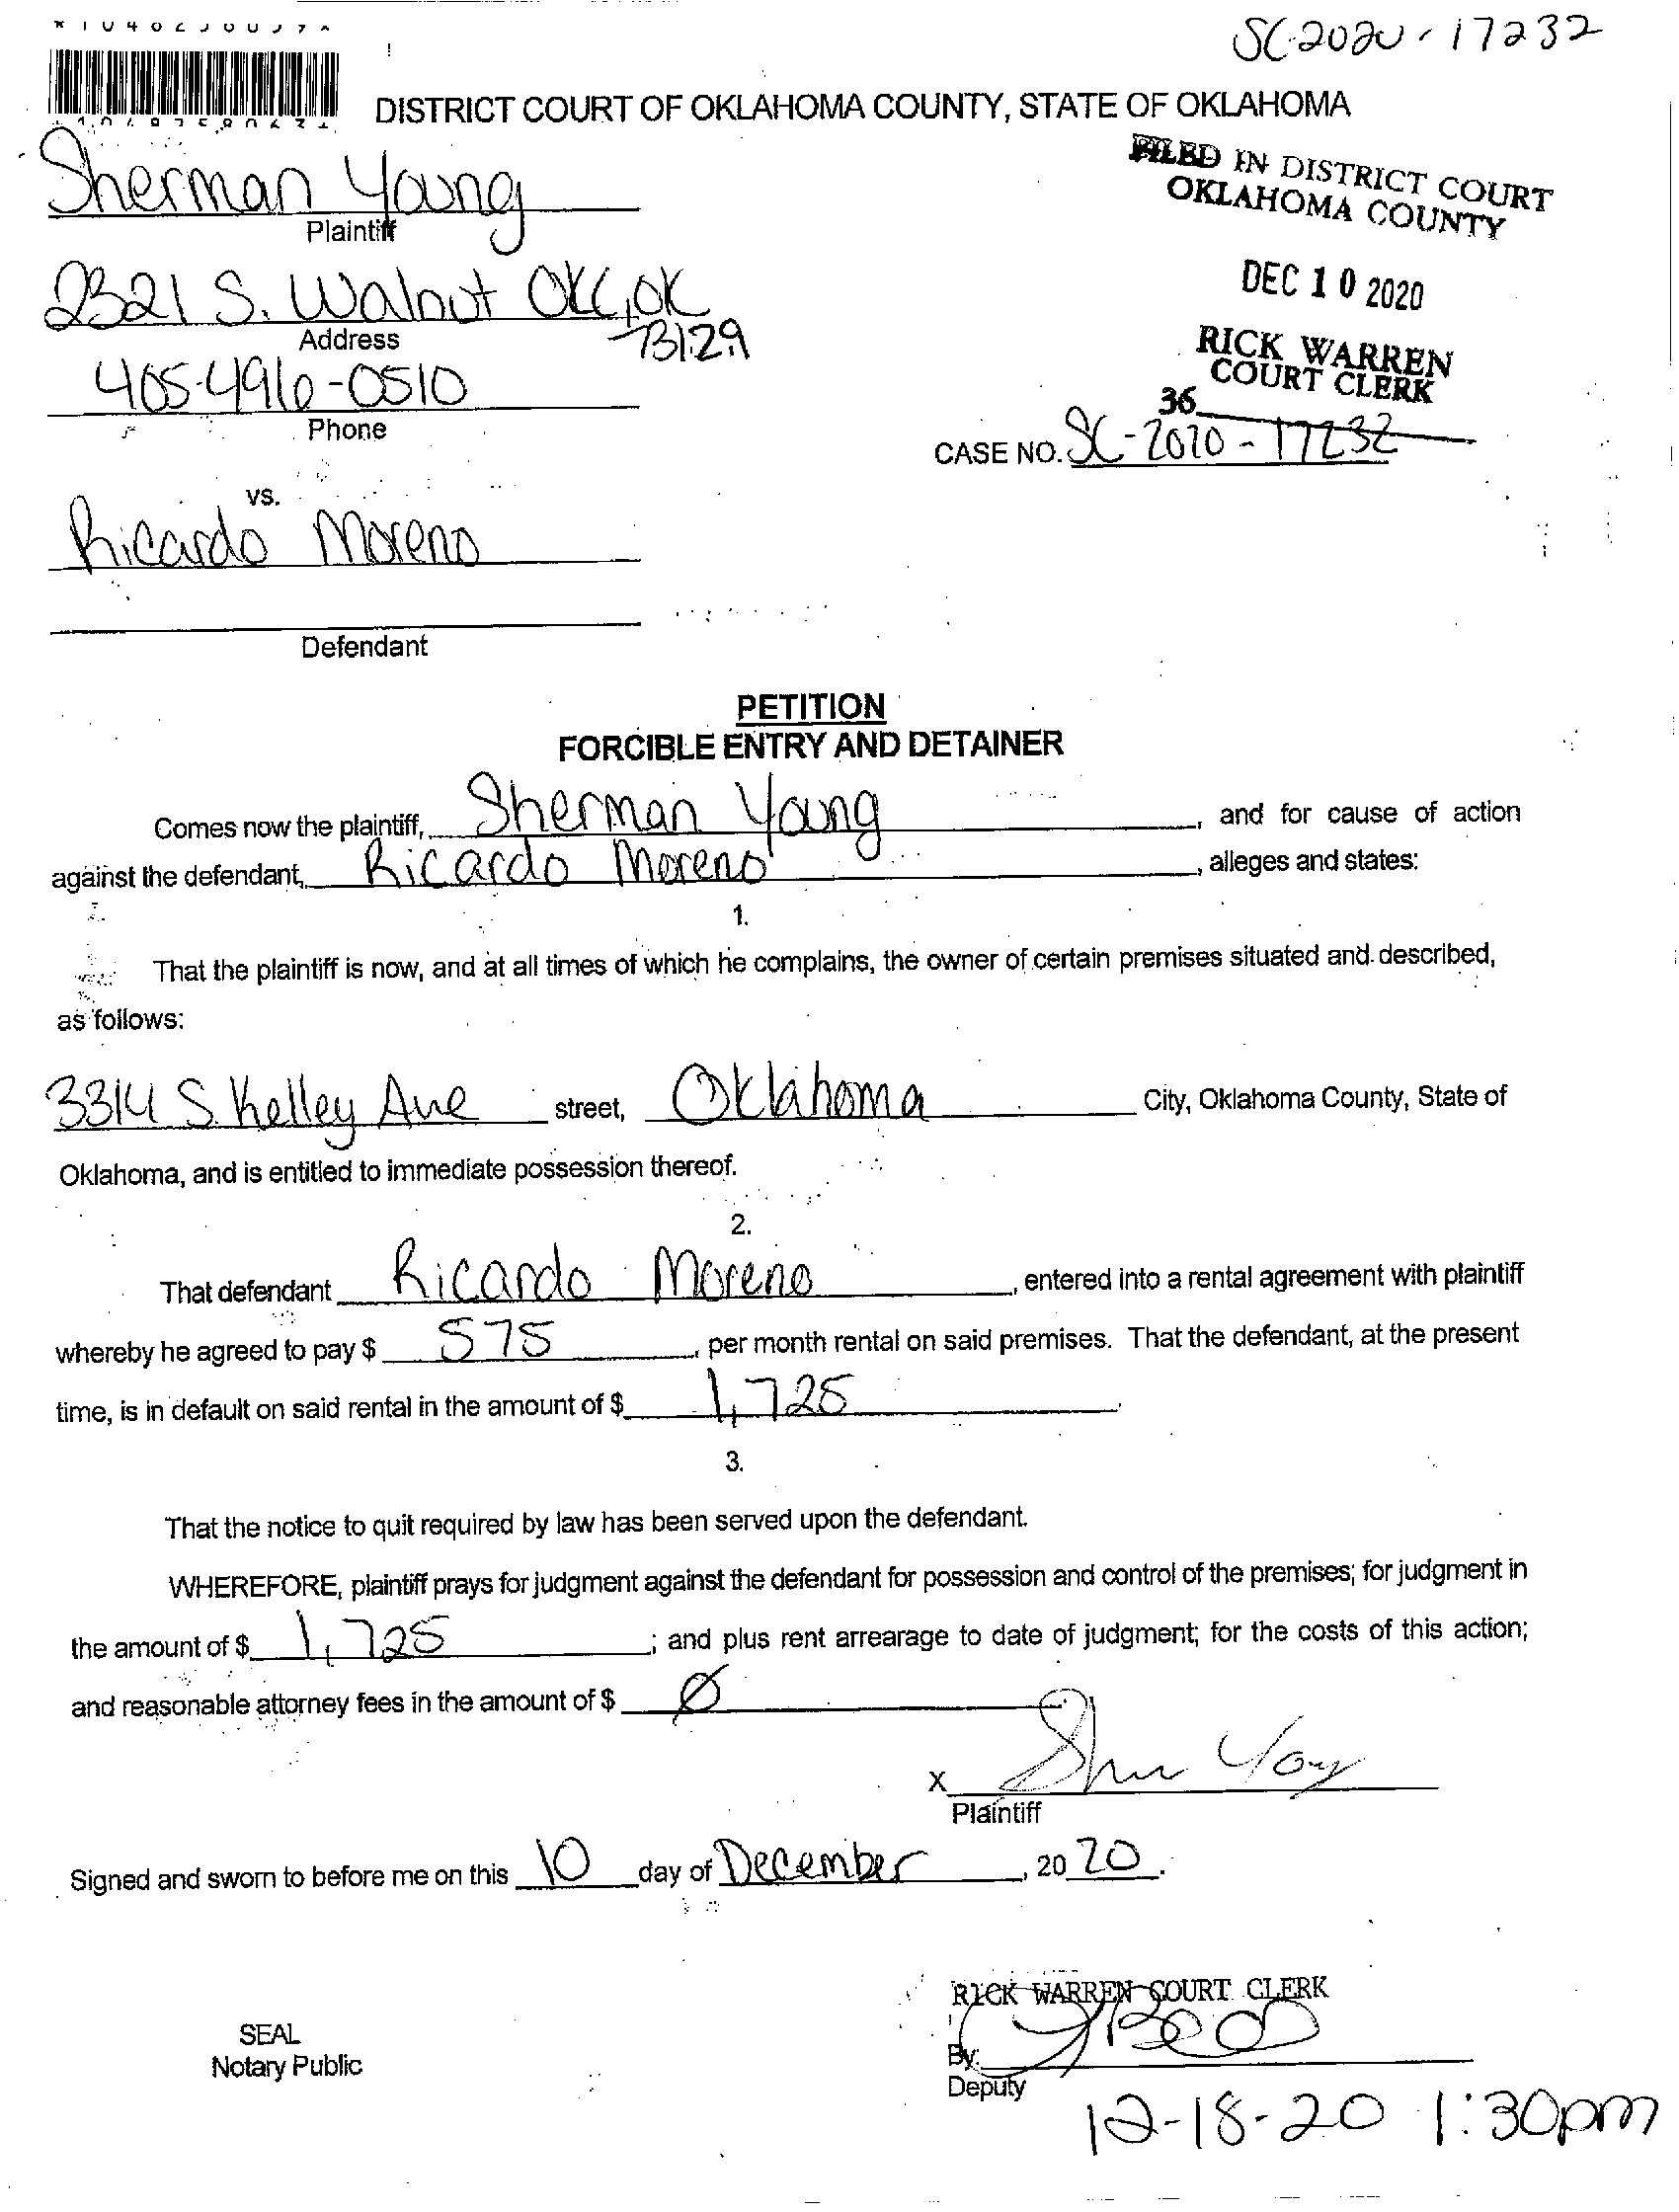 SC-2020-17232
DISTRICT COURT OF OKLAHOMA COUNTY, STATE OF OKLAHOMA
Sherman Young
Plaintiff
FILED IN DISTRICT COURT
OKLAHOMA COUNTY
2321 S. Walnut OKC, OK
73129
Address
DEC 10 2020
405-496-0510
Phone
RICK WARREN
COURT CLERK
36
CASE NO. SC-2020-17232
vs.
Ricardo Moreno
Defendant
PETITION
FORCIBLE ENTRY AND DETAINER
Comes now the plaintiff, Sherman Young, and for cause of action
against the defendant, Ricardo Moreno, alleges and states:
1.
That the plaintiff is now, and at all times of which he complains, the owner of certain premises situated and described,
as follows:
3314 S. Kelley Ave street, Oklahoma City, Oklahoma County, State of
Oklahoma, and is entitled to immediate possession thereof.
2.
That defendant Ricardo Moreno, entered into a rental agreement with plaintiff
whereby he agreed to pay $ 575, per month rental on said premises. That the defendant, at the present
time, is in default on said rental in the amount of $ 1,725.
3.
That the notice to quit required by law has been served upon the defendant.
WHEREFORE, plaintiff prays for judgment against the defendant for possession and control of the premises; for judgment in
the amount of $ 1,725; and plus rent arrearage to date of judgment; for the costs of this action;
and reasonable attorney fees in the amount of $ Ø.
X
Plaintiff
Signed and sworn to before me on this 10 day of December, 2020.
RICK WARREN COURT CLERK
SEAL
Notary Public
By:
Deputy
12-18-20 1:30pm